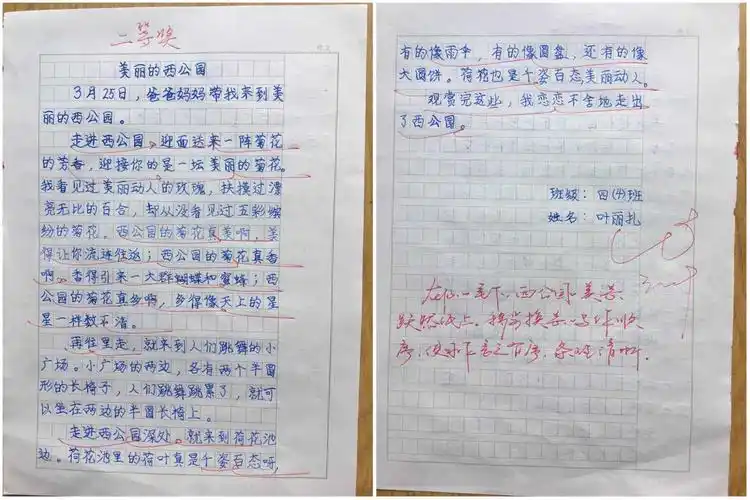 二等奖
美丽的西公园
3月25日，爸爸妈妈带我来到美
丽的西公园。
走进西公园，迎面送来一阵菊花
的芳香，迎接你的是一坛美丽的菊花。
我看见过美丽动人的玫瑰，扶摸过漂
亮无比的百合，却从没看见过五彩缤
纷的菊花。西公园的菊花真美啊，美
得让你流连往返；西公园的菊花真香
啊，香得引来一大群蝴蝶和蜜蜂；西
公园的菊花真多啊，多得像天上的星
星一样数不清。
再往里走，就来到人们跳舞的小
广场。小广场的两边，各有两个半圆
形的长椅子，人们跳舞跳累了，就可
以坐在两边的半圆长椅上。
走进西公园深处。就来到荷花池
边。荷花池里的荷叶真是千姿百态呀，
有的像雨伞，有的像圆盘，还有的像
大圆饼。荷花也是千姿百态美丽动人。
观赏完这些，我恋恋不舍地走出
了西公园。
班级：四(4)班
姓名：叶丽扎
在你的笔下，西公园的美景
跃然纸上，
序，条理清晰。